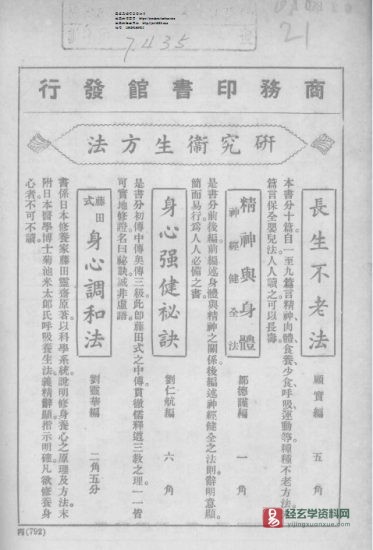 7435
2
商務印書館發行
研究衛生方法
長生不老法
顧實編
五角
本書分十篇自一至九篇言精神肉體食養少食呼吸運動等種種不老方法
篇言保全嬰兒法人人讀之可以長壽
精神與身體
神經健全法
鄒德謹編
一角
是書分前後編前編述身體與精神之關係後編述神經健全之法則辭明意顯
簡而易行爲人人必備之書
身心强健祕訣
劉仁航編
六角
是書分初傳中傳奥傳三級此即藤田式之中傳貫徹儒釋道三敎之理一一皆
可實地修證名曰祕訣誠非虛語
藤田式
身心調和法
劉靈華編
二角五分
書係日本修養家藤田靈齋原著以科學系統說明修身養心之原理及方法末
附日本醫學博士菊池米太郎氏呼吸養生法義精辭顯指示明確凡欲修養身
心者不可不讀
丙(792)
轻玄学资料网